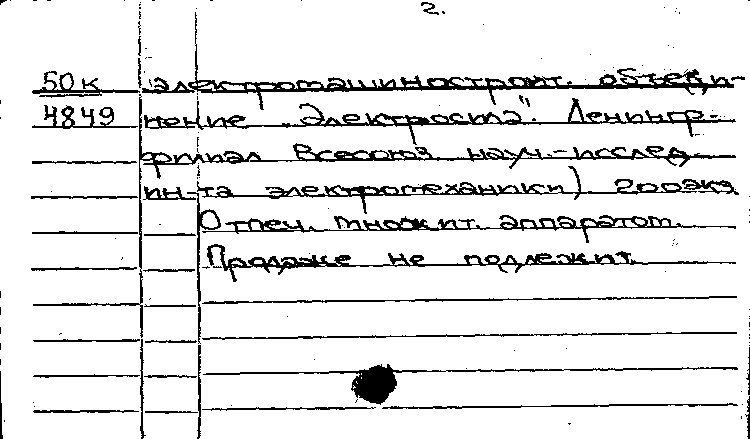 2.
50к электромашиностроит. объеди-
4849 нение „Электросила". Ленингр.
филиал Всесоюз. науч.-исслед.
ин-та электромеханики). 200 экз.
Отпеч. множит. аппаратом.
Продаже не подлежит.